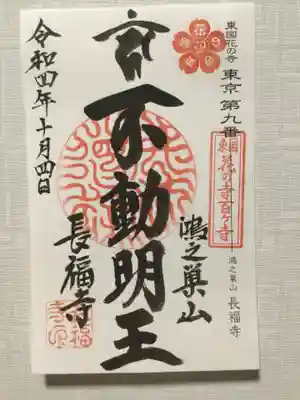 東国花の寺 東京 第九番
東国花の寺百ケ寺
鴻之巣山 長福寺
鴻之巣山
不動明王
長福寺
令和四年十月四日